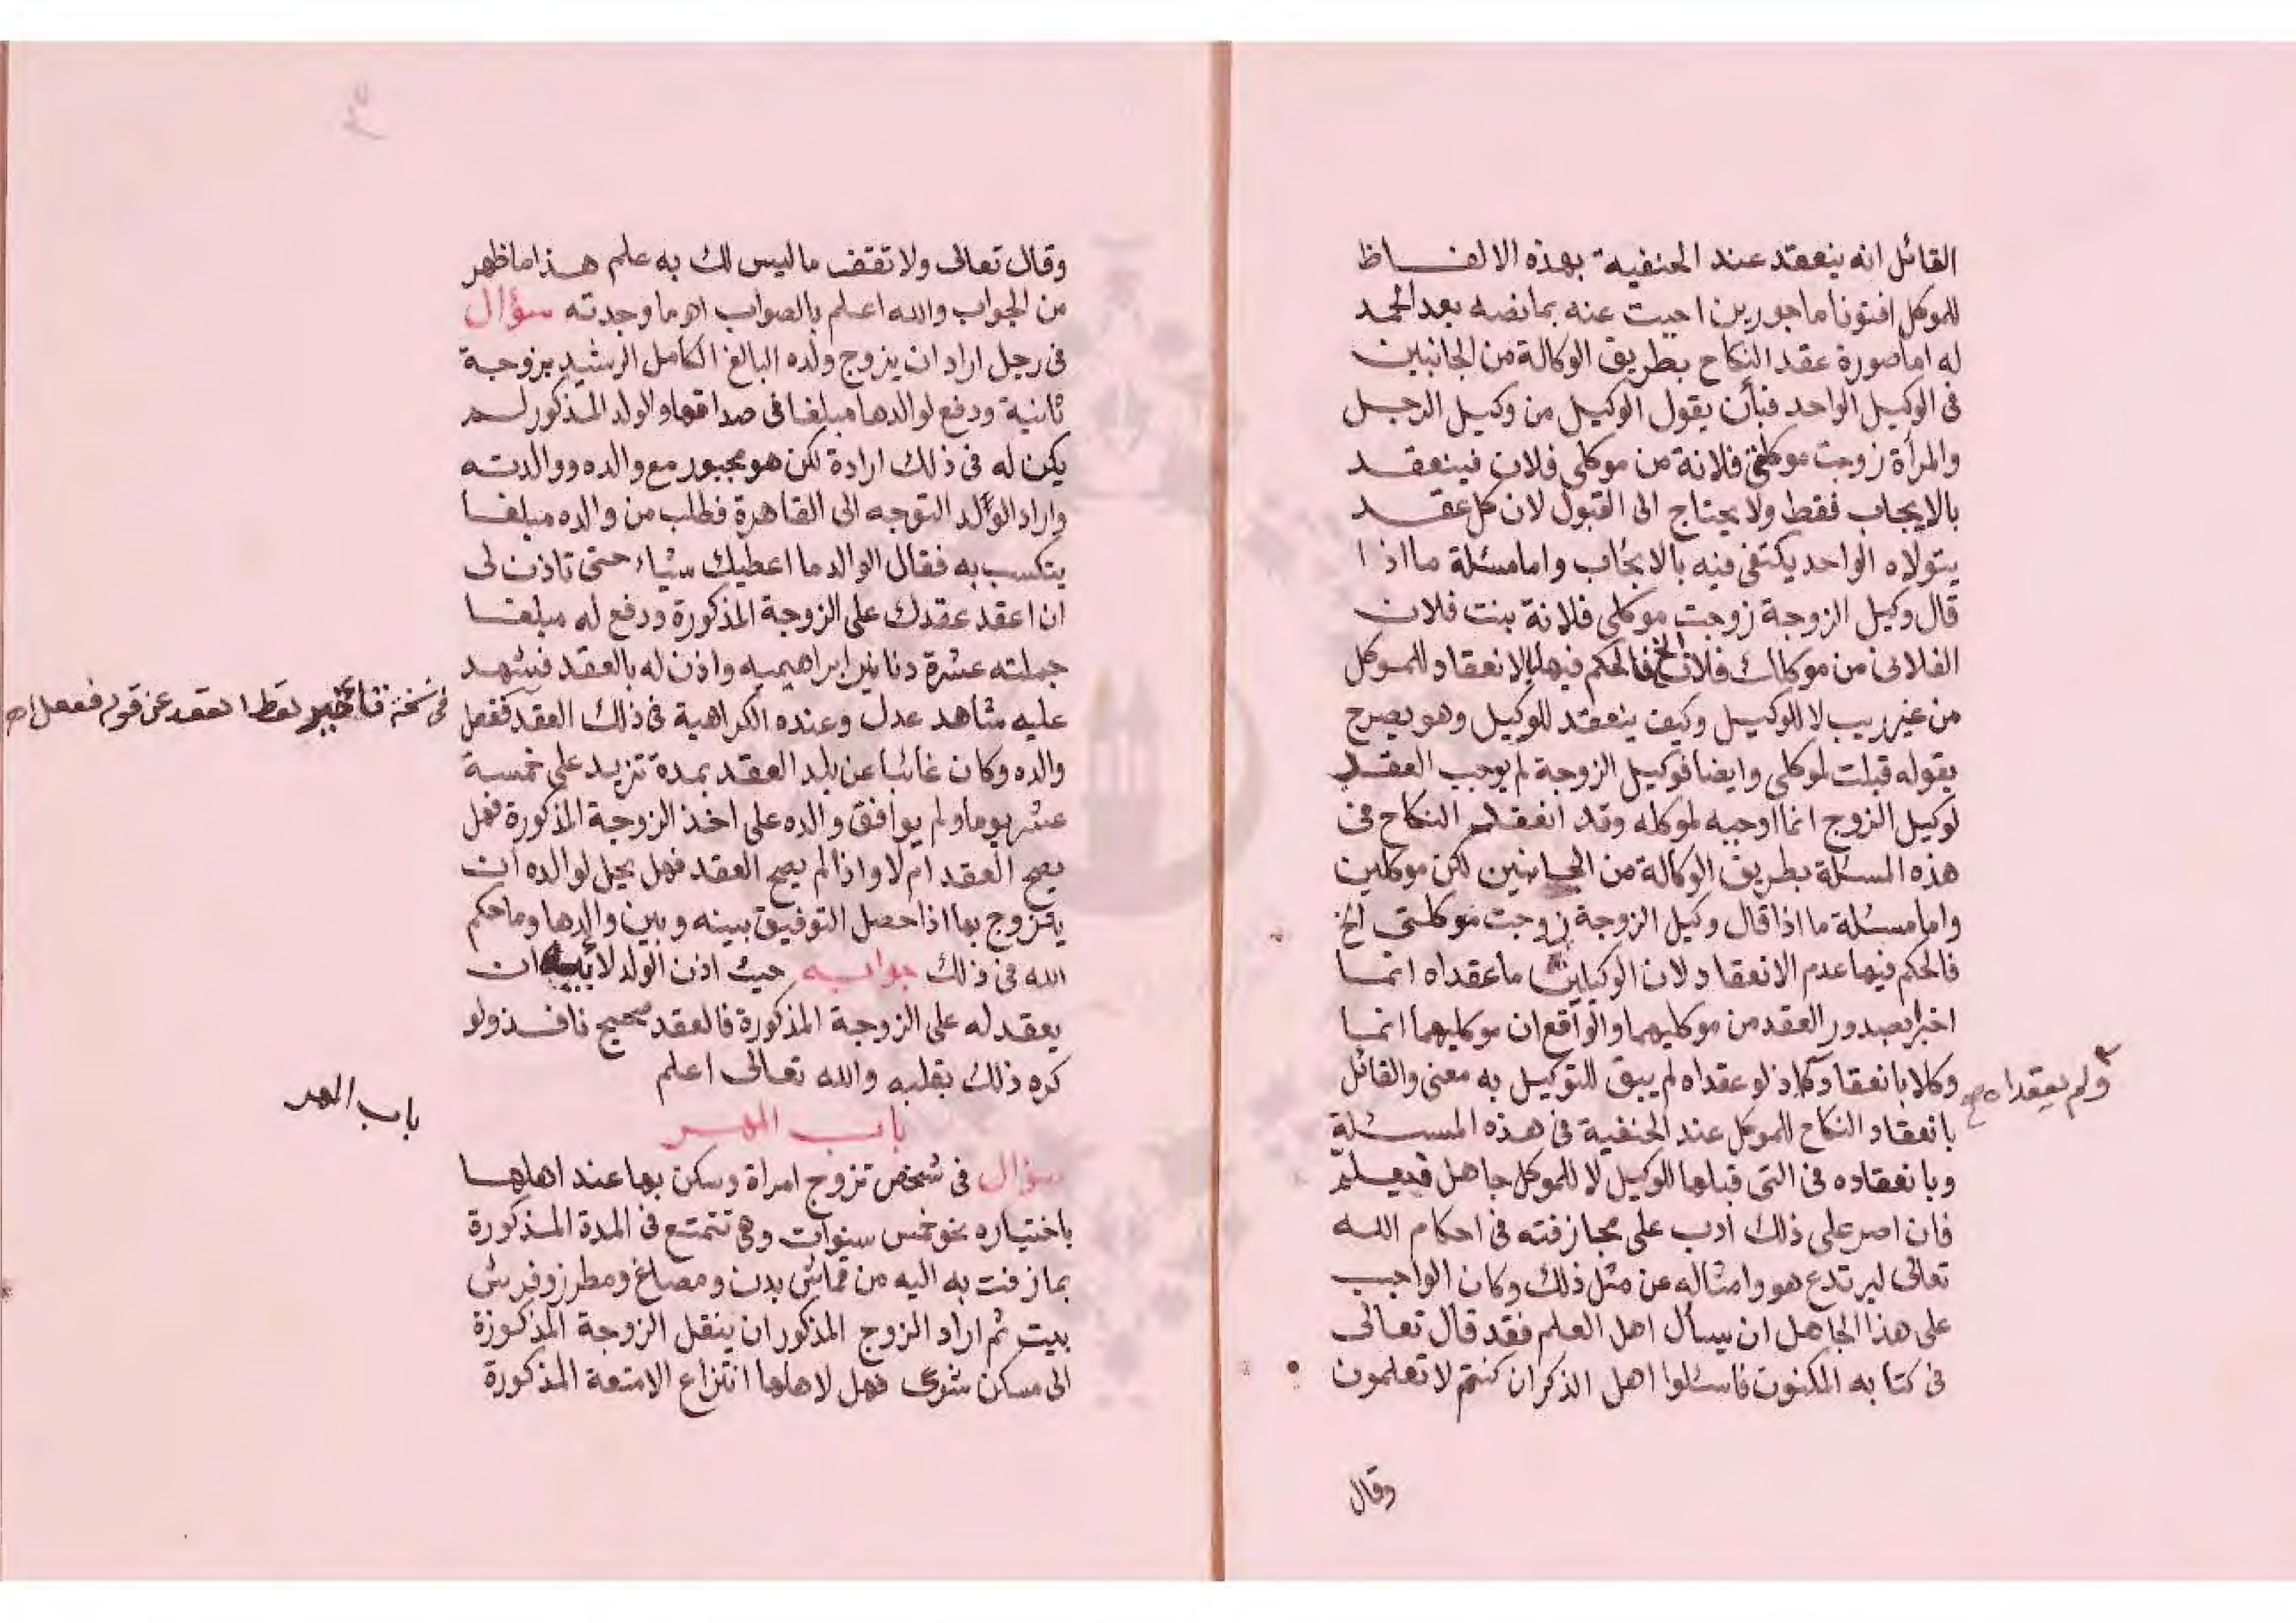 القائل انه ينعقد عند الحنفية بهذه الالفاظ
للموكل افتونا ماجورين اجيت عنه بمانصه بعد الحمد
له اما صورة عقد النكاح بطريق الوكالة من الجانبين
فى الوكيل الواحد فبأن يقول الوكيل من وكيل الرجل
والمرأة زوجت موكلتى فلانة من موكلى فلان فينعقد
بالايجاب فقط ولا يحتاج الى القبول لان كل عقد
يتولاه الواحد يكتفى فيه بالايجاب واما مسئلة ما اذا
قال وكيل الزوجة زوجت موكلى فلانة بنت فلان
الفلانى من موكلك فلان الخ فالحكم فيها بالانعقاد للموكل
من غير ريب لا للوكيل وكيف ينعقد للوكيل وهو يصرح
بقوله قبلت لموكلى وايضا فوكيل الزوجة لم يوجب العقد
لوكيل الزوج انما اوجبه لموكله وقد انعقد النكاح فى
هذه المسئلة بطريق الوكالة من الجانبين لكن موكلين
واما مسئلة ما اذا قال وكيل الزوجة زوجت موكلتى الخ
فالحكم فيها عدم الانعقاد لان الوكيلين ما عقداه انما
اخبرا بصدور العقد من موكليهما والواقع ان موكليهما انما
وكلا بانعقاده اذ لو عقداه لم يبق للتوكيل به معنى والقائل
ولم يعقداه صح
بانعقاد النكاح للموكل عند الحنفية فى هذه المسئلة
وبانعقاده فى التى قبلها للوكيل لا للموكل جاهل فيعلم
فان اصر على ذلك أدب على مجازفته فى احكام الله
تعالى ليرتدع هو وامثاله عن مثل ذلك وكان الواجب
على هذا الجاهل ان يسأل اهل العلم فقد قال تعالى
فى كتابه المكنون فاسئلوا اهل الذكر ان كنتم لا تعلمون
وقال
وقال تعالى ولا تقف ما ليس لك به علم هذا ما ظهر
من الجواب والله اعلم بالصواب اه ما وجدته سؤال
فى رجل اراد ان يزوج ولده البالغ الكامل الرشيد بزوجة
ثانية ودفع لوالدها مبلغا فى صداقها والولد المذكور لم
يكن له فى ذلك ارادة لكن هو مجبور مع والده ووالدته
واراد الولد التوجه الى القاهرة فطلب من والده مبلغا
يتكسب به فقال الوالد ما اعطيك شيئاء حتى تاذن لى
ان اعقد عقدك على الزوجة المذكورة ودفع له مبلغا
جملته عشرة دنانير ابراهيميه واذن له بالعقد فشهد
عليه شاهد عدل وعنده الكراهية فى ذلك العقد ففعل
فى نسخة تاخير لفظ العقد عن قوله ففعل اه
والده وكان غائبا عن بلد العقد بمدة تزيد على خمسة
عشر يوما ولم يوافق والده على اخذ الزوجة المذكورة فهل
يصح العقد ام لا واذا لم يصح العقد فهل يحل لوالده ان
يتزوج بها اذا حصل التوفيق بينه وبين والدها وما حكم
الله فى ذلك جوابه حيث اذن الولد لأبيه ان
يعقد له على الزوجة المذكورة فالعقد صحيح نافذ ولو
كره ذلك بقلبه والله تعالى اعلم
باب المهر
باب المهر
سؤال فى شخص تزوج امراة وسكن بها عند اهلها
باختياره نحو خمس سنوات وهى تتمتع فى المدة المذكورة
بما زفت به اليه من قماش بدن ومصاغ ومطرز وفرش
بيت ثم اراد الزوج المذكور ان ينقل الزوجة المذكورة
الى مسكن شرعى فهل لاهلها انتزاع الامتعة المذكورة